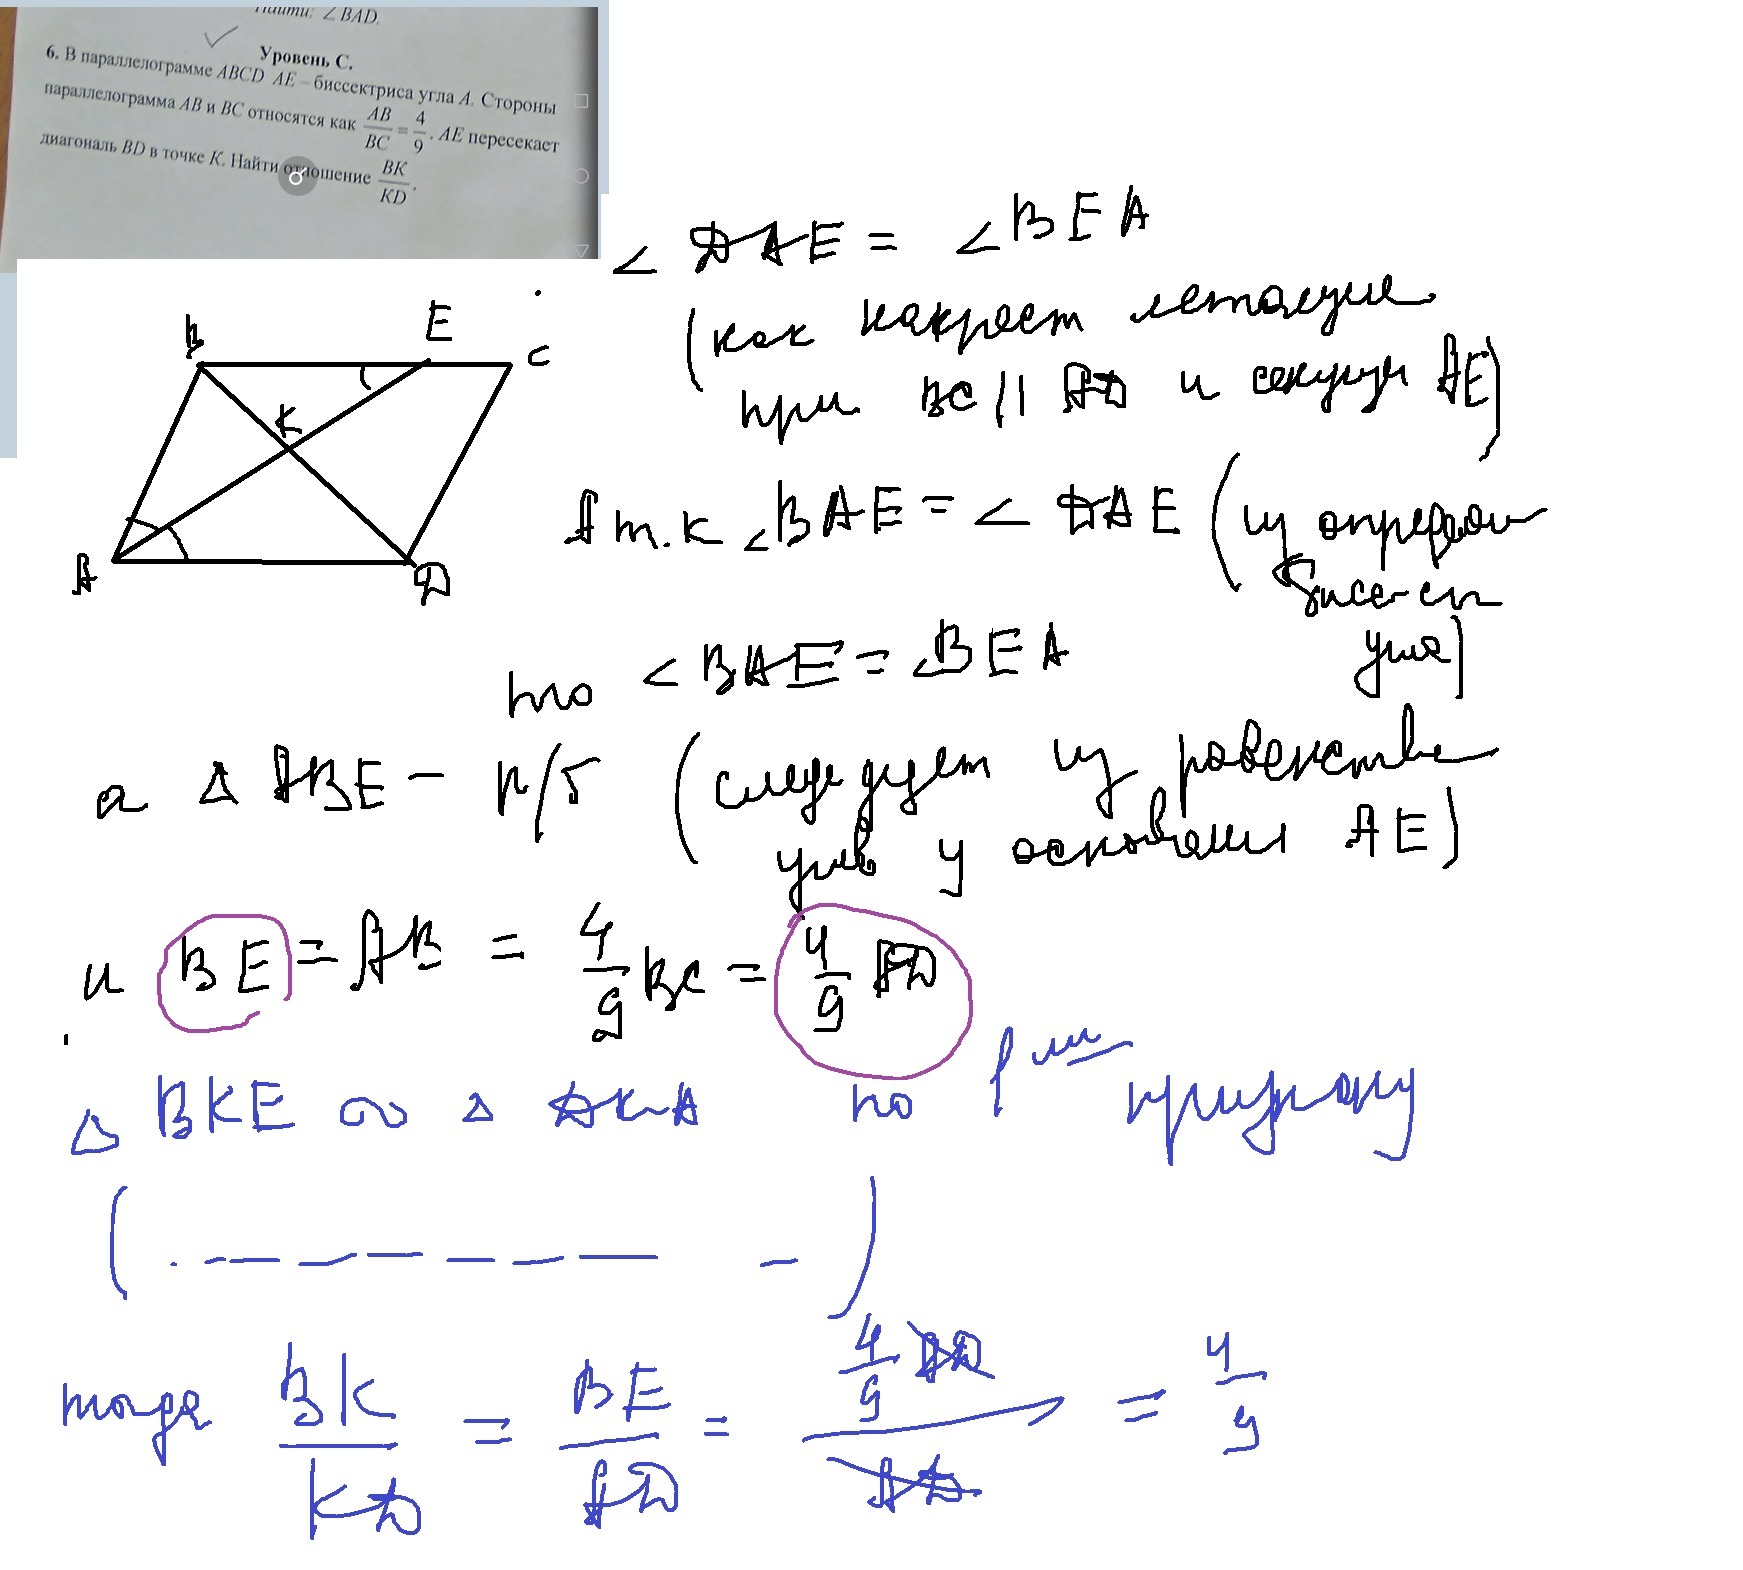 Найти: ∠BAD.
Уровень С.
6. В параллелограмме ABCD AE – биссектриса угла A. Стороны
параллелограмма AB и BC относятся как AB/BC = 4/9. AE пересекает
диагональ BD в точке K. Найти отношение BK/KD.
∠ DAE = ∠BEA
(как накрест лежащие
при BC || AD и секущей AE)
B
E
C
K
A
D
А т.к ∠BAE = ∠ DAE (из
угла)
то ∠BAE = ∠BEA
а △ ABE – р/б (следует из равенства
углов у основания AE)
и BE = AB = 4/9 BC = 4/9 AD
△ BKE ∾ △ DKA по признаку
(. — — — — — — —)
тогда BK/KD = BE/AD = 4/9 AD / AD = 4/9